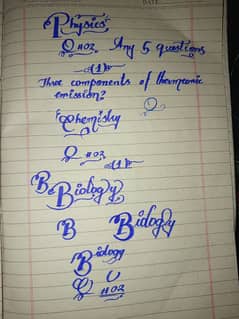 Physics
Q #02. Any 5 questions
(1)
Three components of thermionic
emission?
Q
Chemistry
Q #02
(1)
B Biology
B Biology
Biology
Q #02